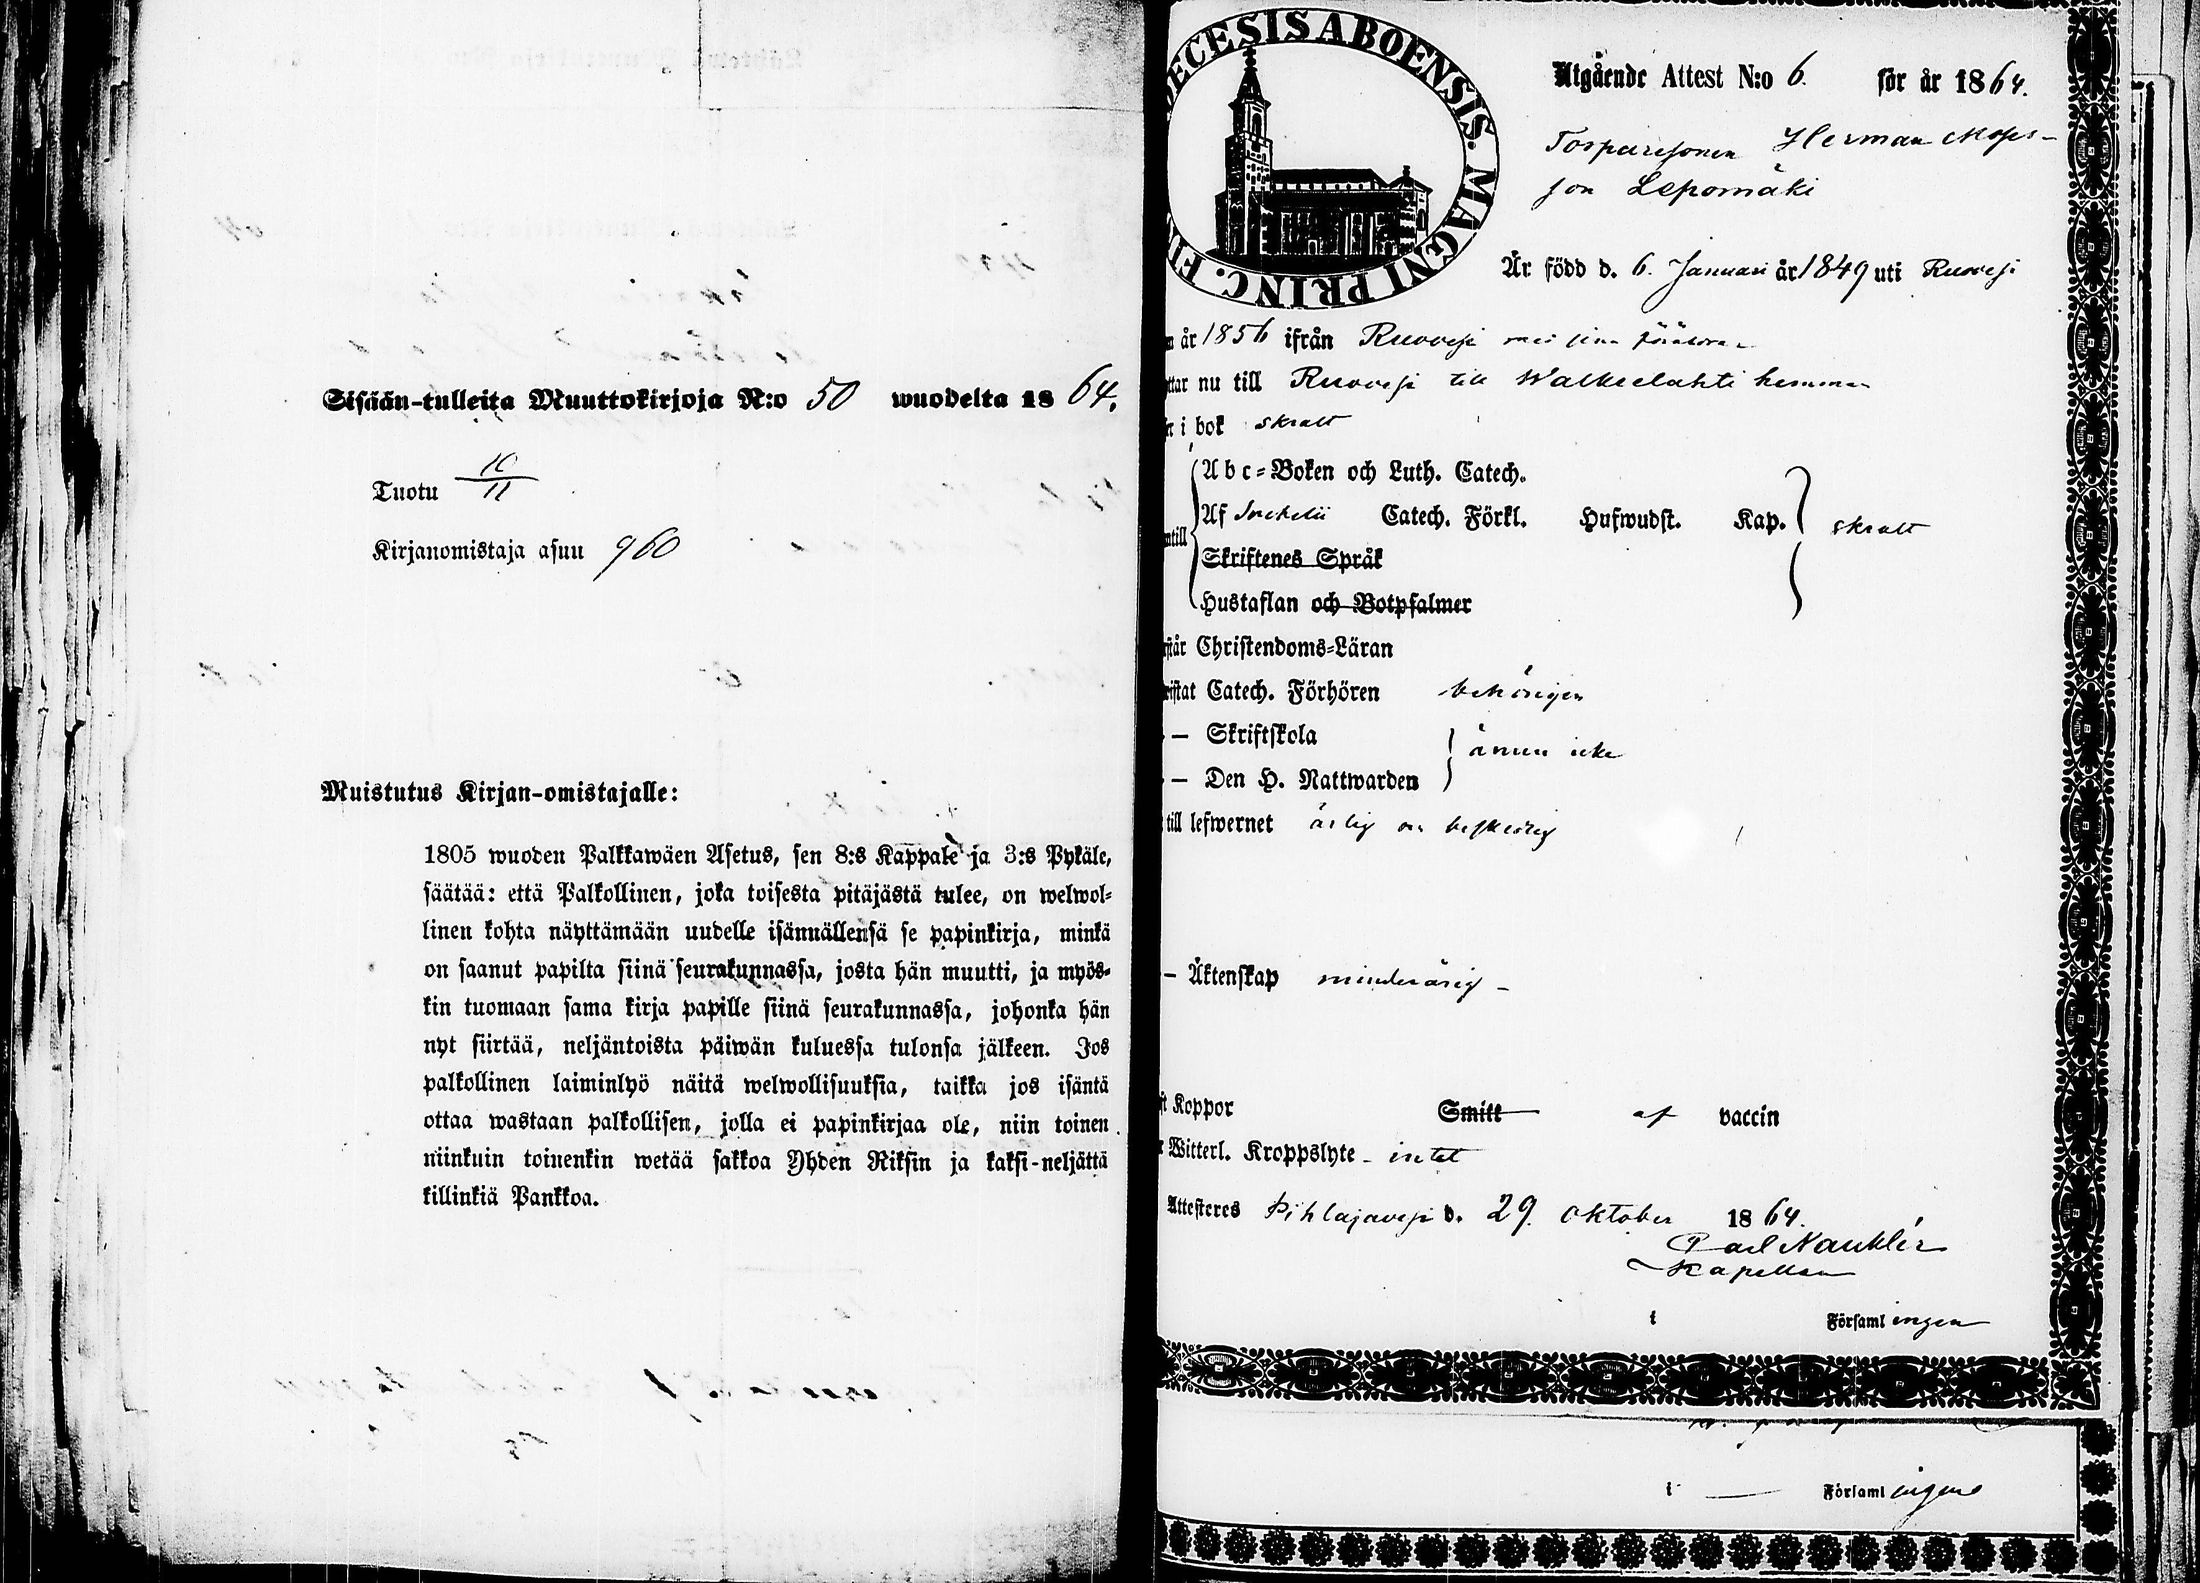 Sisään-tulleita Muuttokirjoja N:o 50 wuodelta 1864.
Tuotu 10/11
Kirjanomistaja asuu 960
Muistutus Kirjan-omistajalle:
1805 wuoden Palkkawäen Asetus, sen 8:s Kappale ja 3:s Pykäle,
säätää: että Palkollinen, joka toisesta pitäjästä tulee, on welwol-
linen kohta näyttämään uudelle isännällensä se papinkirja, minkä
on saanut papilta siinä seurakunnassa, josta hän muutti, ja myös-
kin tuomaan sama kirja papille siinä seurakunnassa, johonka hän
nyt siirtää, neljäntoista päiwän kuluessa tulonsa jälkeen. Jos
palkollinen laiminlyö näitä welwollisuuksia, taikka jos isäntä
ottaa wastaan palkollisen, jolla ei papinkirjaa ole, niin toinen
niinkuin toinenkin wetää sakkoa Yhden Riksin ja kaksi-neljättä
killinkiä Pankkoa.
ECESIS ABOENSIS. MAGNI PRINC. FI
Utgående Attest N:o 6. för år 1864.
Herman Moses-
son Lepomäki
Är född d. 6. Januari år 1849 uti Ruovesi
år 1856 ifrån Ruovesi med sina föräldrar
nu till Ruovesi till Walkeelahti hemman
i bok skralt
Abc-Boken och Luth. Catech.
Af Svebelii Catech. Förkl. Hufwudst. Kap. skralt
Skriftenes Språk
Hustaflan och Botpsalmer
Christendoms-Läran
Catech. Förhören behörigen
— Skriftskola
ännu icke
— Den H. Nattwarden
till lefwernet ärlig och beskedlig
— Äktenskap minderårig -
Koppor Smitt af vaccin
Witterl. Kroppslyte - intet
Attesteres Pihlajavesi d. 29. Oktober 1864.
Carl Nauklér
Kapellan
i Församlingen
i — Församlingens